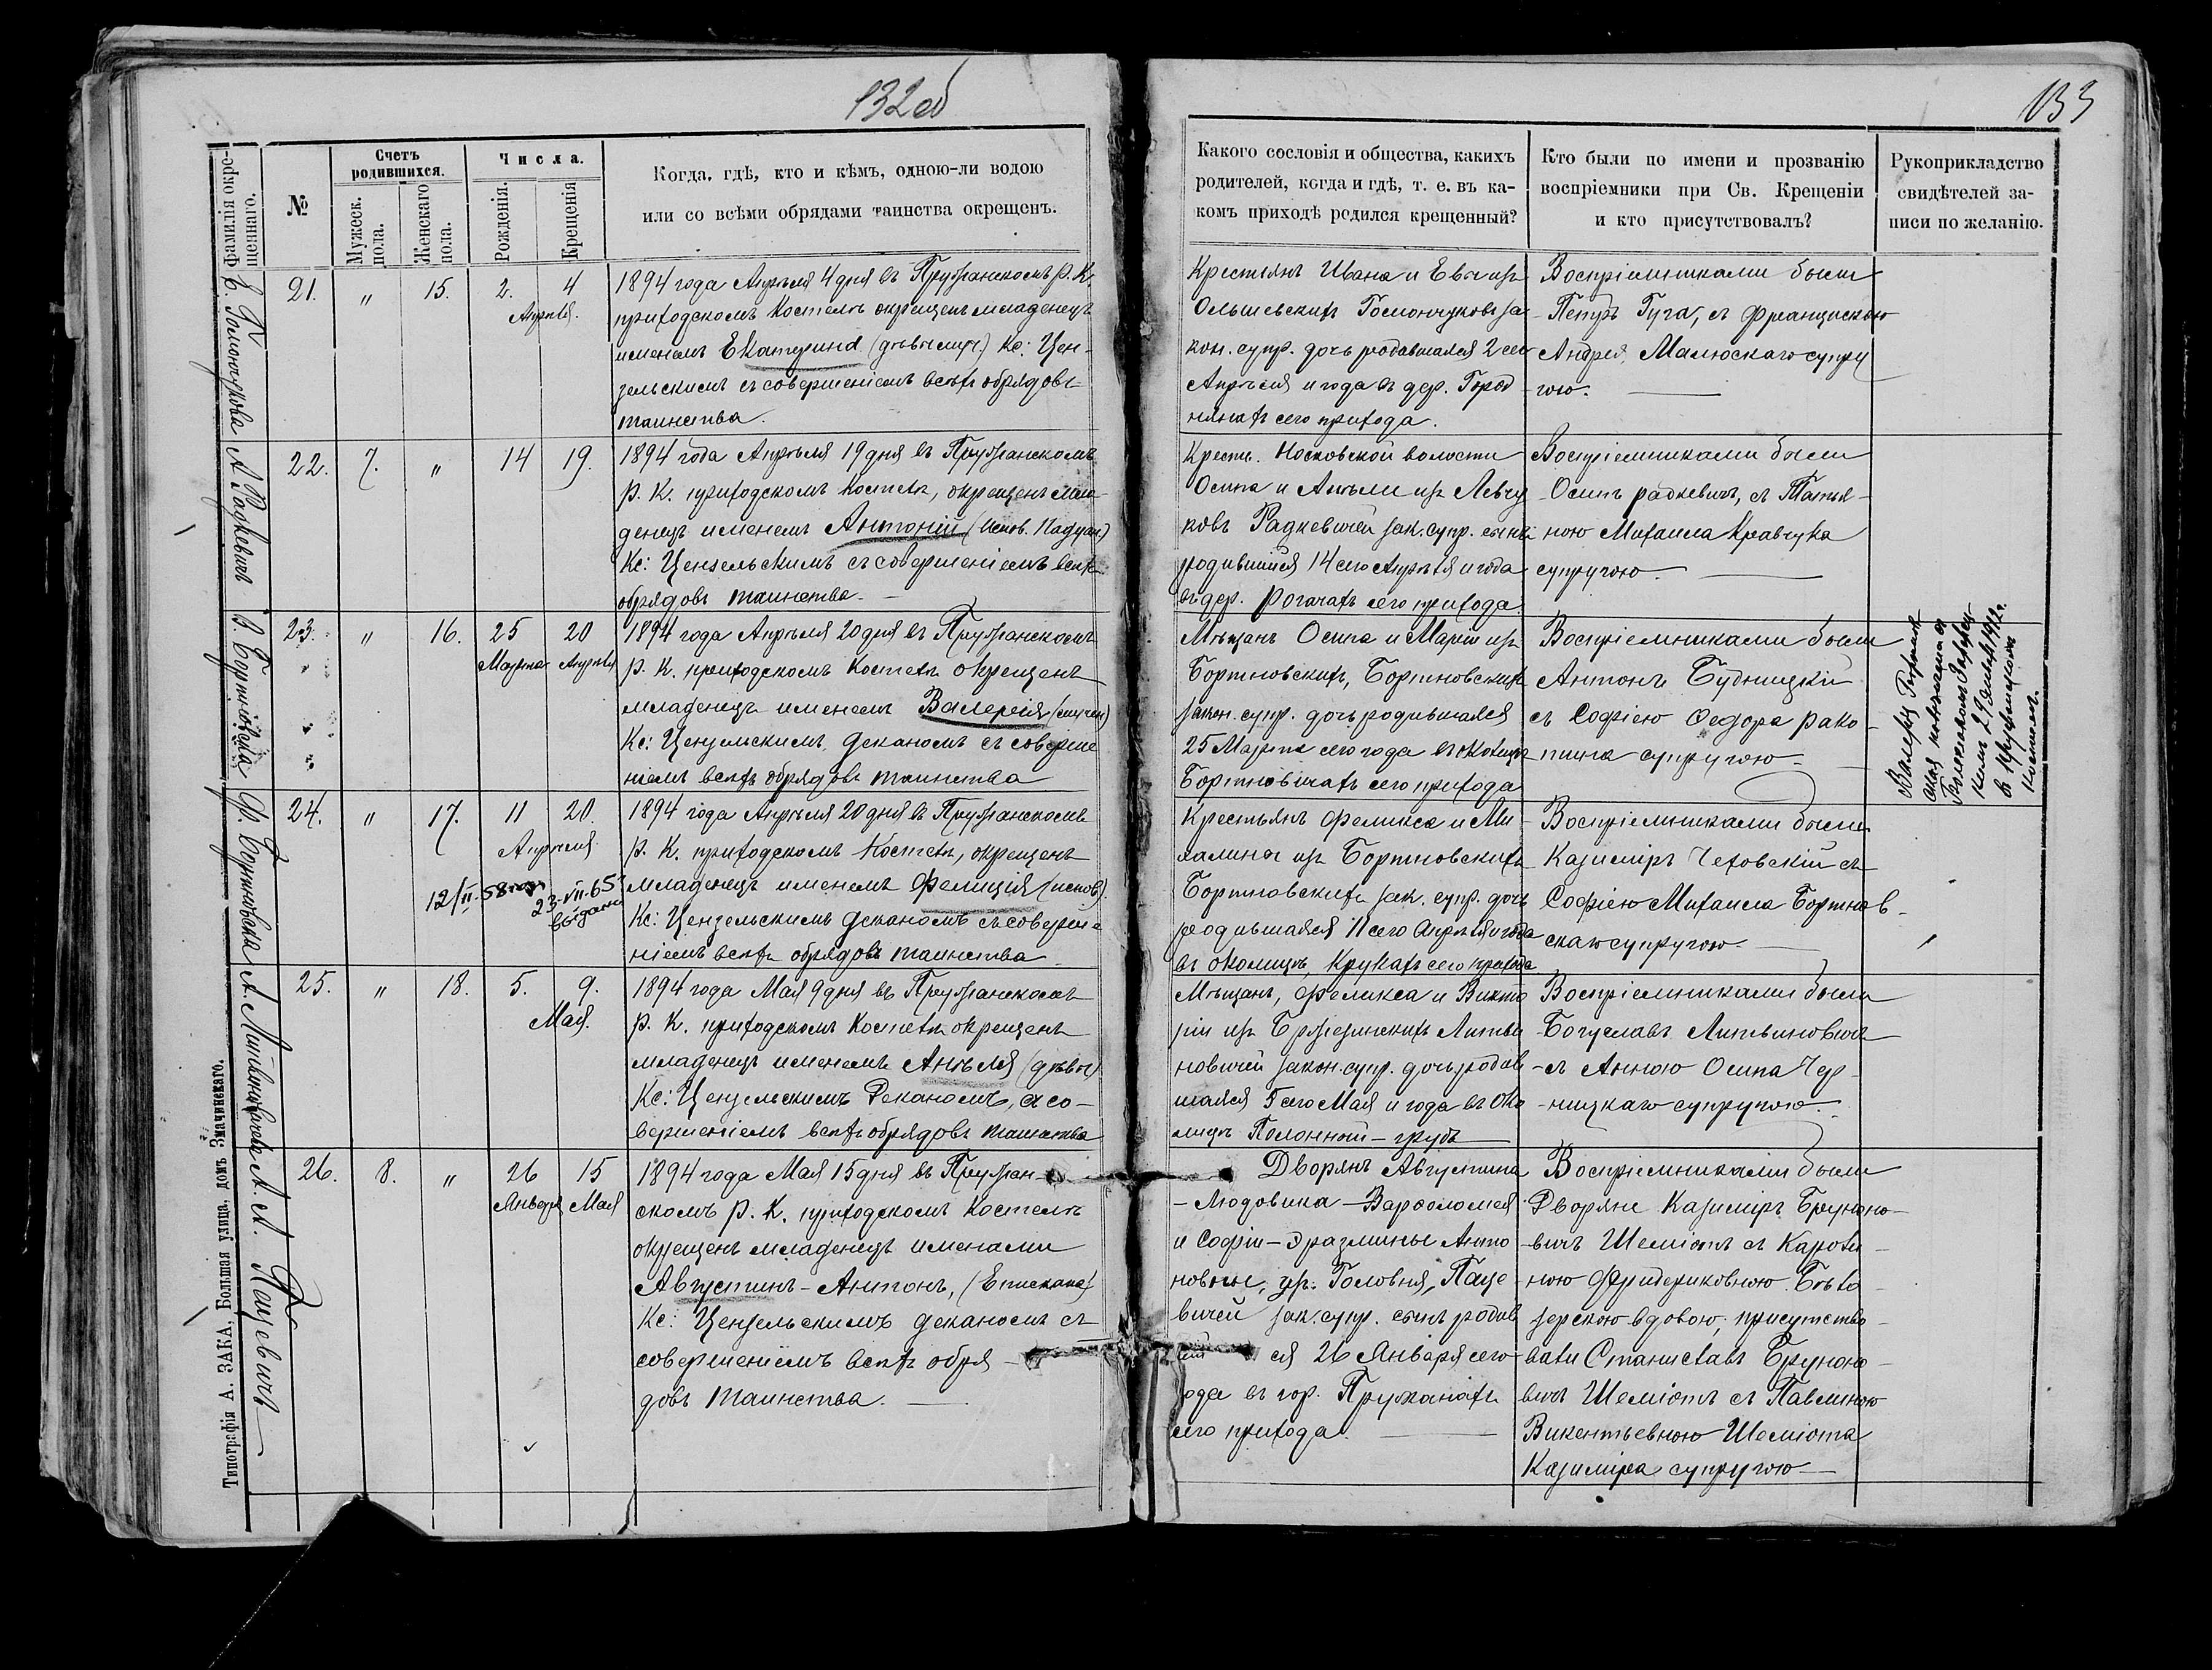 132 об
133
фамилія окре-
щеннаго.
№
Счетъ
родившихся.
Мужеск.
пола.
Женскаго
пола.
Числа.
Рожденія.
Крещенія
Когда, гдѣ, кто и кѣмъ, одною-ли водою
или со всѣми обрядами таинства окрещенъ.
Какого сословія и общества, какихъ
родителей, когда и гдѣ, т. е. въ ка-
комъ приходѣ родился крещенный?
Кто были по имени и прозванію
воспріемники при Св. Крещеніи
и кто присутствовалъ?
Рукоприкладство
свидѣтелей за-
писи по желанію.
Е. Гомончукова
21. " 15. 2. 4
Апрѣля.
1894 года Апрѣля 4 дня въ Пружанскомъ Р. К.
приходскомъ Костелѣ окрещенъ младенецъ
именемъ Екатерина (дѣвы муч.) Кс: Цен-
зельскимъ съ совершеніемъ всѣхъ обрядовъ
таинства.
Крестьянъ Ивана и Евы изъ
Ольшевскихъ Гомончуковъ за
кон. супр. дочь родившаяся 2 сего
Апрѣля и года въ дер. Город
нянахъ сего прихода.
Воспріемниками были
Петръ Гуча, съ Францискою
Андрея Малюскаго супру
гою.
А Радкевичъ
22. 7. " 14 19.
1894 года Апрѣля 19 дня въ Пружанскомъ
Р. К. приходскомъ Костелѣ, окрещенъ мла-
денецъ именемъ Антоній (Испов. Падуан.)
Кс: Цензельскимъ съ совершеніемъ всѣхъ
обрядовъ таинства.
Крестъ. Носковской волости
Осипа и Анѣли изъ Левчу
ковъ Радкевичей зак. супр. сынъ
родившийся 14 сего Апрѣля и года
въ дер. Рогачахъ сего прихода
Воспріемниками были
Осипъ Радкевичъ, съ Татья-
ною Михаила Кравчука
супругою.
В. Бортновска
23. " 16. 25 20
Марта Апрѣля
1894 года Апрѣля 20 дня въ Пружанскомъ
Р. К. приходскомъ Костелѣ окрещенъ
младенецъ именемъ Валерія (мучен)
Кс: Цензельскимъ, Деканомъ съ соверше
ніемъ всѣхъ обрядовъ таинства
Мѣщанъ Осипа и Маріи изъ
Бортновскихъ, Бортновскихъ
закон. супр. дочь родившаяся
25 Марта сего года въ околицѣ
Бортновичахъ сего прихода
Воспріемниками были
Антонъ Будницкій
съ Софіею Ѳедора Рако-
тина супругою
в Пружанском
Костелѣ.
Ф. Бортновска
24. " 17. 11 20.
Апрѣля
12/II-58 года
23-VII-65
выдана
1894 года Апрѣля 20 дня въ Пружанскомъ
Р. К. приходскомъ Костелѣ, окрещенъ
младенецъ именемъ Фелиція (испов).
Кс: Цензельскимъ Деканомъ съ соверше
ніемъ всѣхъ обрядовъ таинства
Крестьянъ Феликса и Ми-
халины изъ Бортновскихъ
Бортновскихъ зак. супр. дочь
родившаяся 11 сего Апрѣля и года
въ околицѣ Крукахъ сего прихода
Воспріемниками были
Казиміръ Чеховскій съ
Софіею Михаила Бортнов-
скаго супругою
А. Литвиновичъ
25. " 18. 5. 9.
Мая.
1894 года Мая 9 дня въ Пружанскомъ
Р. К. приходскомъ Костелѣ окрещенъ
младенецъ именемъ Анѣля (дѣвы)
Кс: Цензельскимъ Деканомъ, съ со-
вершеніемъ всѣхъ обрядовъ таинства
Мѣщанъ, Феликса и Викто
ріи изъ Бржезинскихъ Литви
новичей закон. супр. дочь родив
шаяся 5 сего Мая и года въ око
лицѣ Полонной-грудъ
Воспріемниками были
Богуславъ Литвиновичъ
съ Анною Осипа Чер-
ницкаго супругою.
А. А. Пацевичъ
26. 8. " 26 15
Января Мая
1894 года Мая 15 дня въ Пружан-
скомъ Р. К. приходскомъ Костелѣ
окрещенъ младенецъ именами
Августинъ-Антонъ, (Епископа)
Кс: Цензельскимъ деканомъ съ
совершеніемъ всѣхъ обря-
довъ таинства.
Дворянъ Августина
-Людовика-Варѳоломея
и Софіи-Эразмины Анто
новны, изъ Головня, Паце-
вичей зак. супр. сынъ родив
ся 26 Января сего
года въ гор. Пружанахъ
сего прихода.
Воспріемниками были
Дворяне Казиміръ Бруноно-
вичъ Шеміотъ съ Кароли-
ною Фридериковною Бѣло-
зерскою вдовою, присутство-
вали Станиславъ Брунono-
вичъ Шеміотъ съ Павлиною
Викентьевною Шеміота
Казиміра супругою
Типографія А. ЗАКА, Большая улица, домъ Значинскаго.